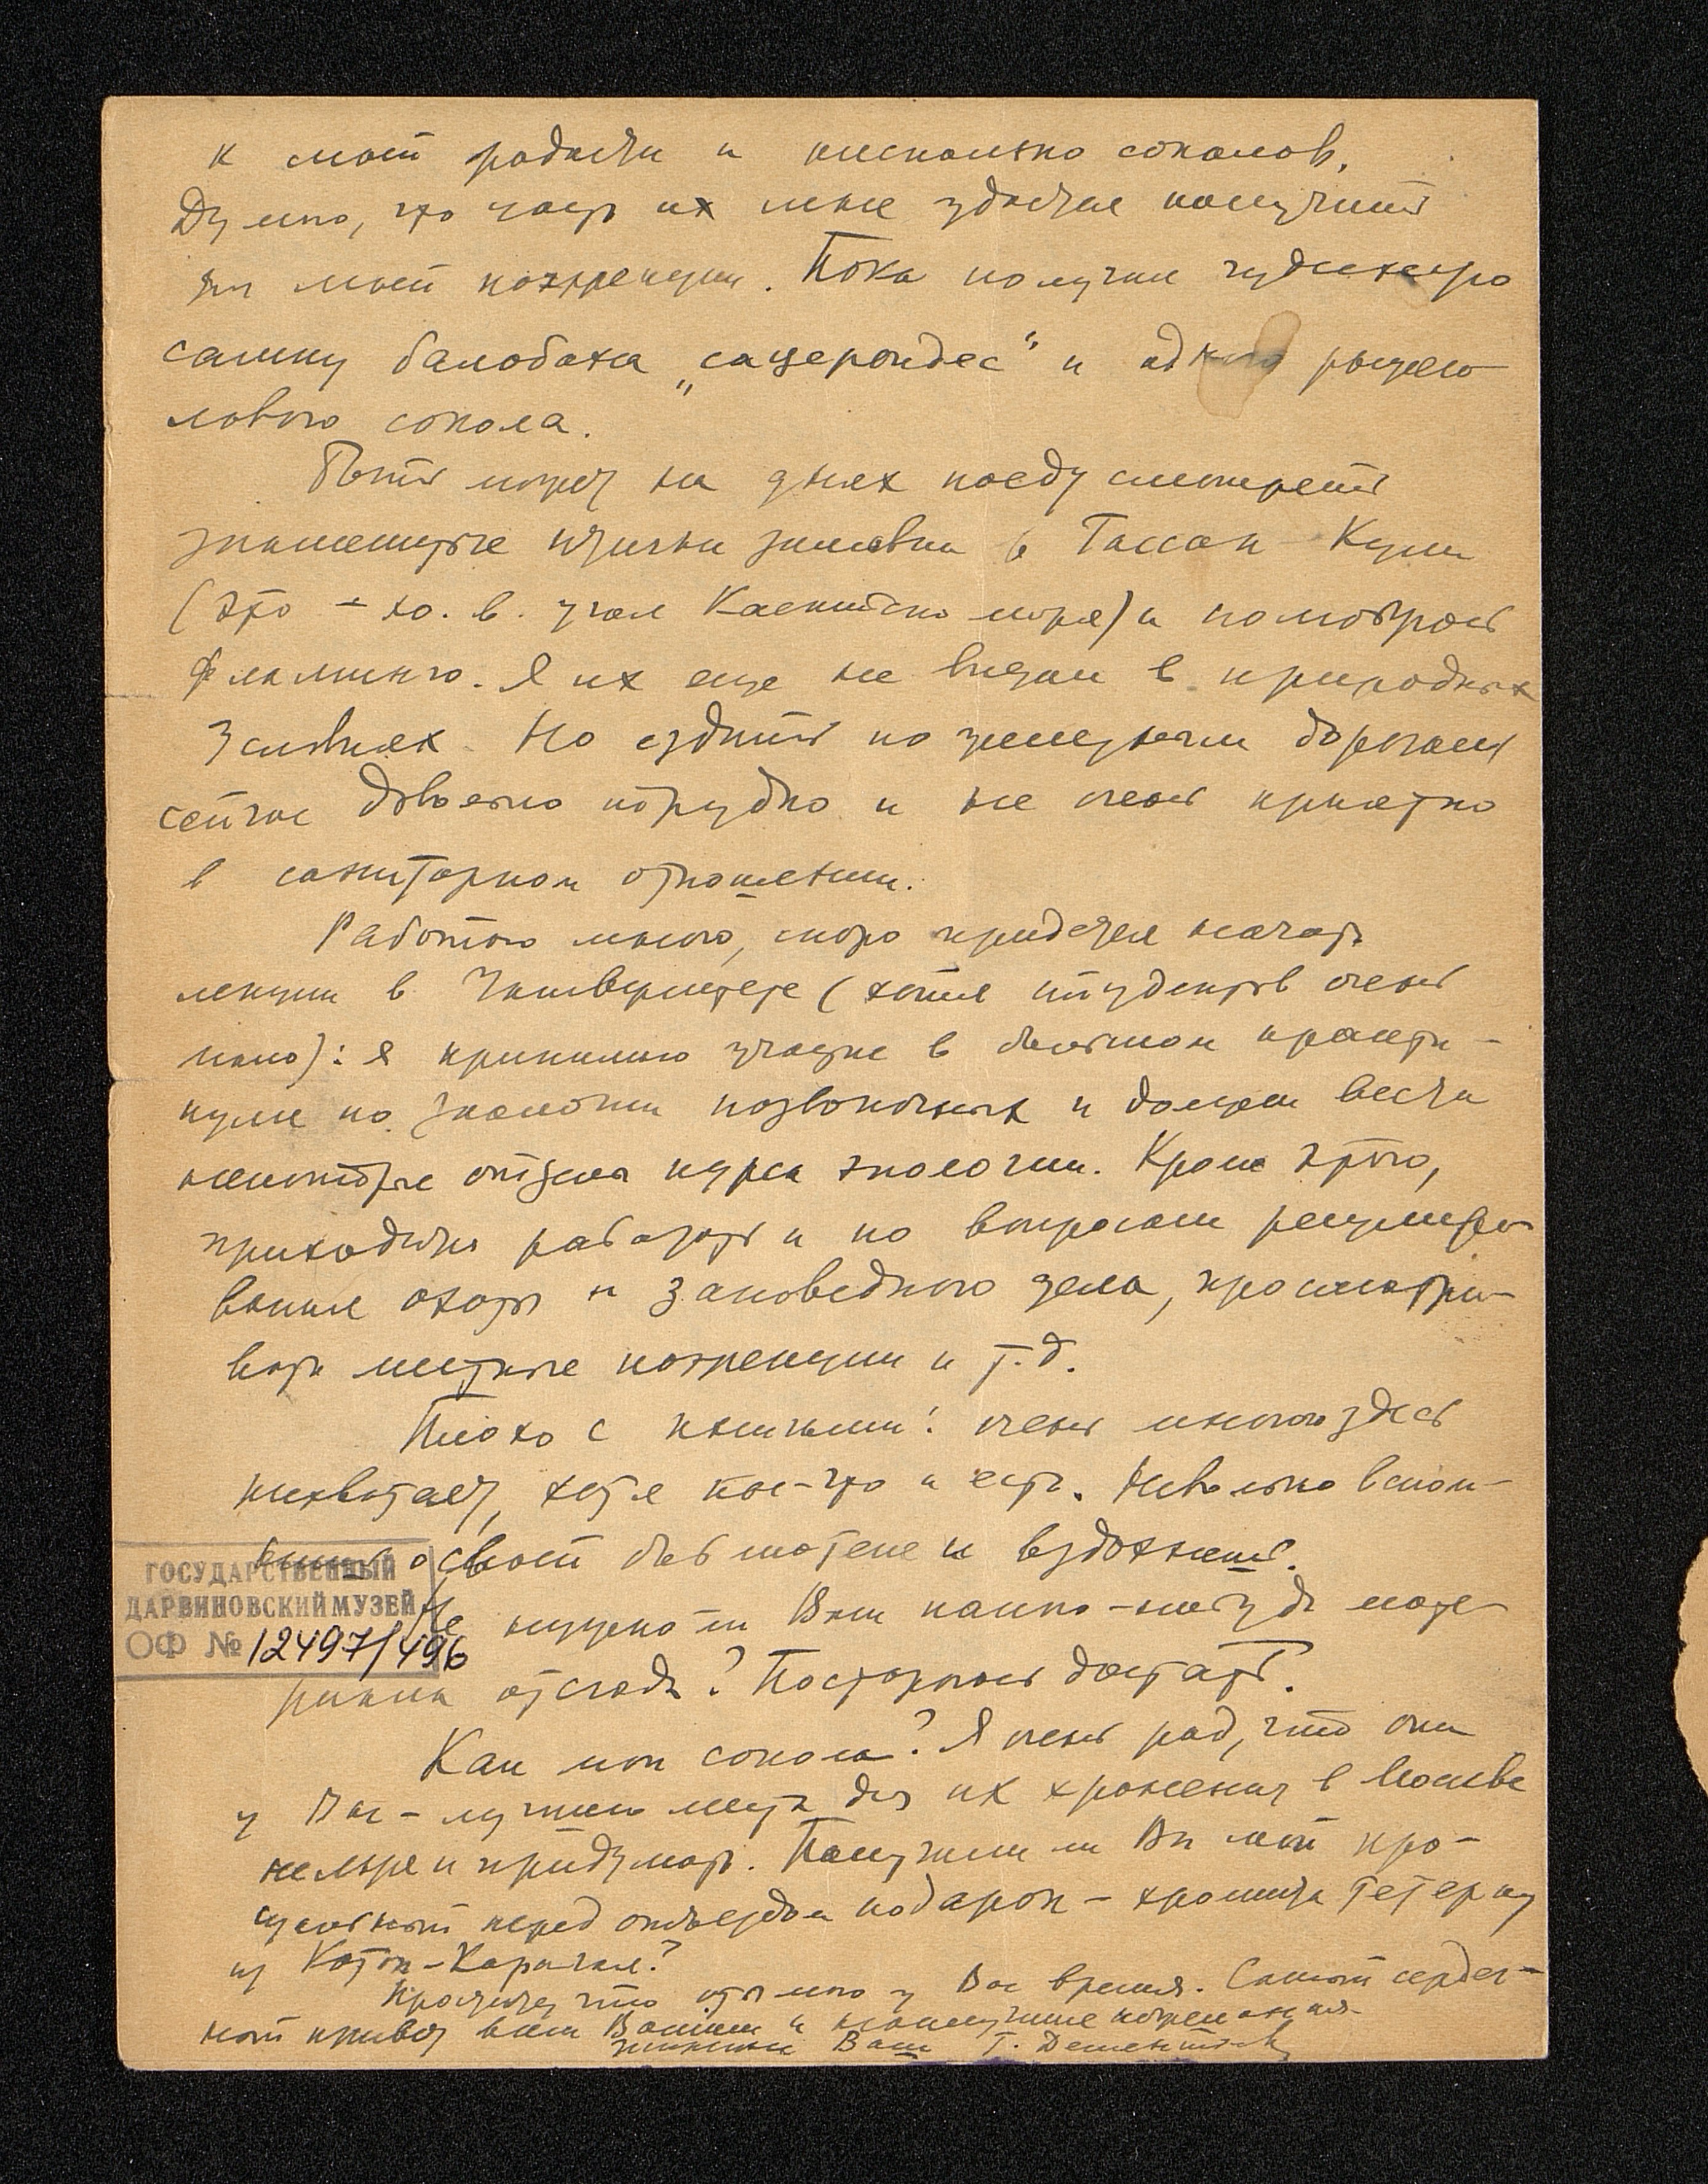 к моей радости и несколько соколов.
Думаю, что часть их мне удастся получить
для моей коллекции. Пока получил чудесную
самку балобана „сацероидес" и одного рыжего-
лового сокола.
Быть может на днях поеду смотреть
знаменитые птичьи зимовки в Гассан-Кули
(это - ю. в. угол Каспийского моря) и посмотрю
фламинго. Я их еще не видал в природных
условиях. Но ездить по железным дорогам
сейчас довольно трудно и не очень приятно
в санитарном отношении.
Работаю много, скоро придется начать
лекции в Университете (хотя студентов очень
мало): я принимаю участие в большом практи-
куме по зоологии позвоночных и должен вести
некоторые отделы курса экологии. Кроме этого,
приходится работать и по вопросам регулиро-
вания охоты и заповедного дела, просматри-
вать местные коллекции и т.д.
Плохо с книгами: очень многого здесь
нехватает, хотя кое-что и есть. Невольно вспом-
нишь о своей библиотеке и вздохнешь.
Не нужно ли Вам каких-нибудь мате-
риалов отсюда? Постараюсь достать.
Как мои сокола? Я очень рад, что они
у Вас - лучшего места для их хранения в Москве
нельзя и придумать. Получили ли Вы мой про-
щальный перед отъездом подарок - хромиста тетерку
из Катон-Карагая?
Простите, что отнимаю у Вас время. Самый сердеч-
ный привет всем Вашим и наилучшие пожелания.
Ваш Г. Дементьев
ГОСУДАРСТВЕННЫЙ
ДАРВИНОВСКИЙ МУЗЕЙ
ОФ № 12497/496